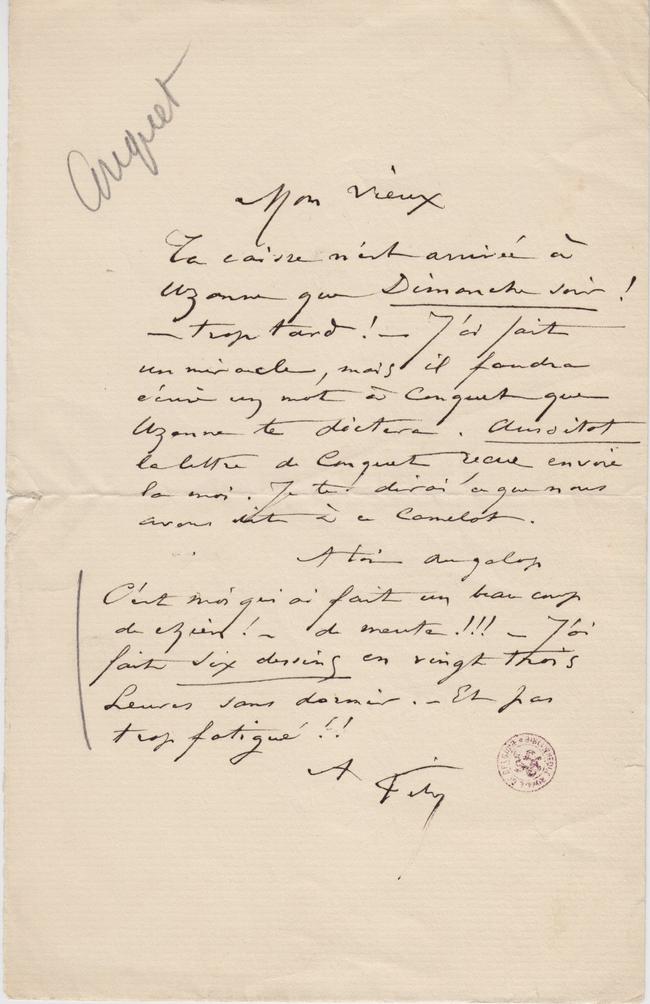 Conquet
Mon vieux
Ta caisse n'est arrivée à
Uzanne que Dimanche soir !
— trop tard ! — J'ai fait
un miracle, mais il faudra
écrire un mot à Conquet que
Uzanne te dictera. Aussitot
la lettre de Conquet recue envoie
la moi. Je te dirai ce que nous
avons dit à ce Camelot.
A toi au galop
C'est moi qui ai fait un beau coup
de chien ! — de meute !!! — J'ai
fait six dessins en vingt trois
heures sans dormir. — Et pas
trop fatigué !!
A Fély